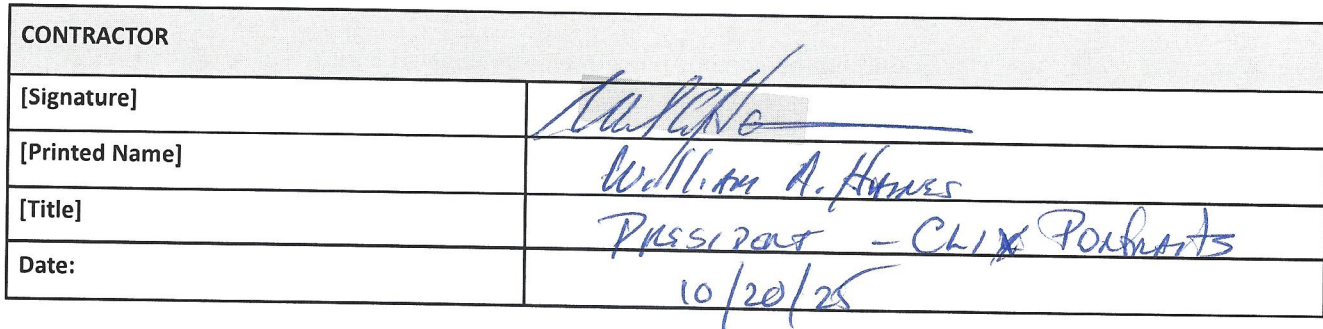 CONTRACTOR
[Signature]
[Printed Name] William A. Haynes
[Title] President - CLIX Portraits
Date: 10/20/25